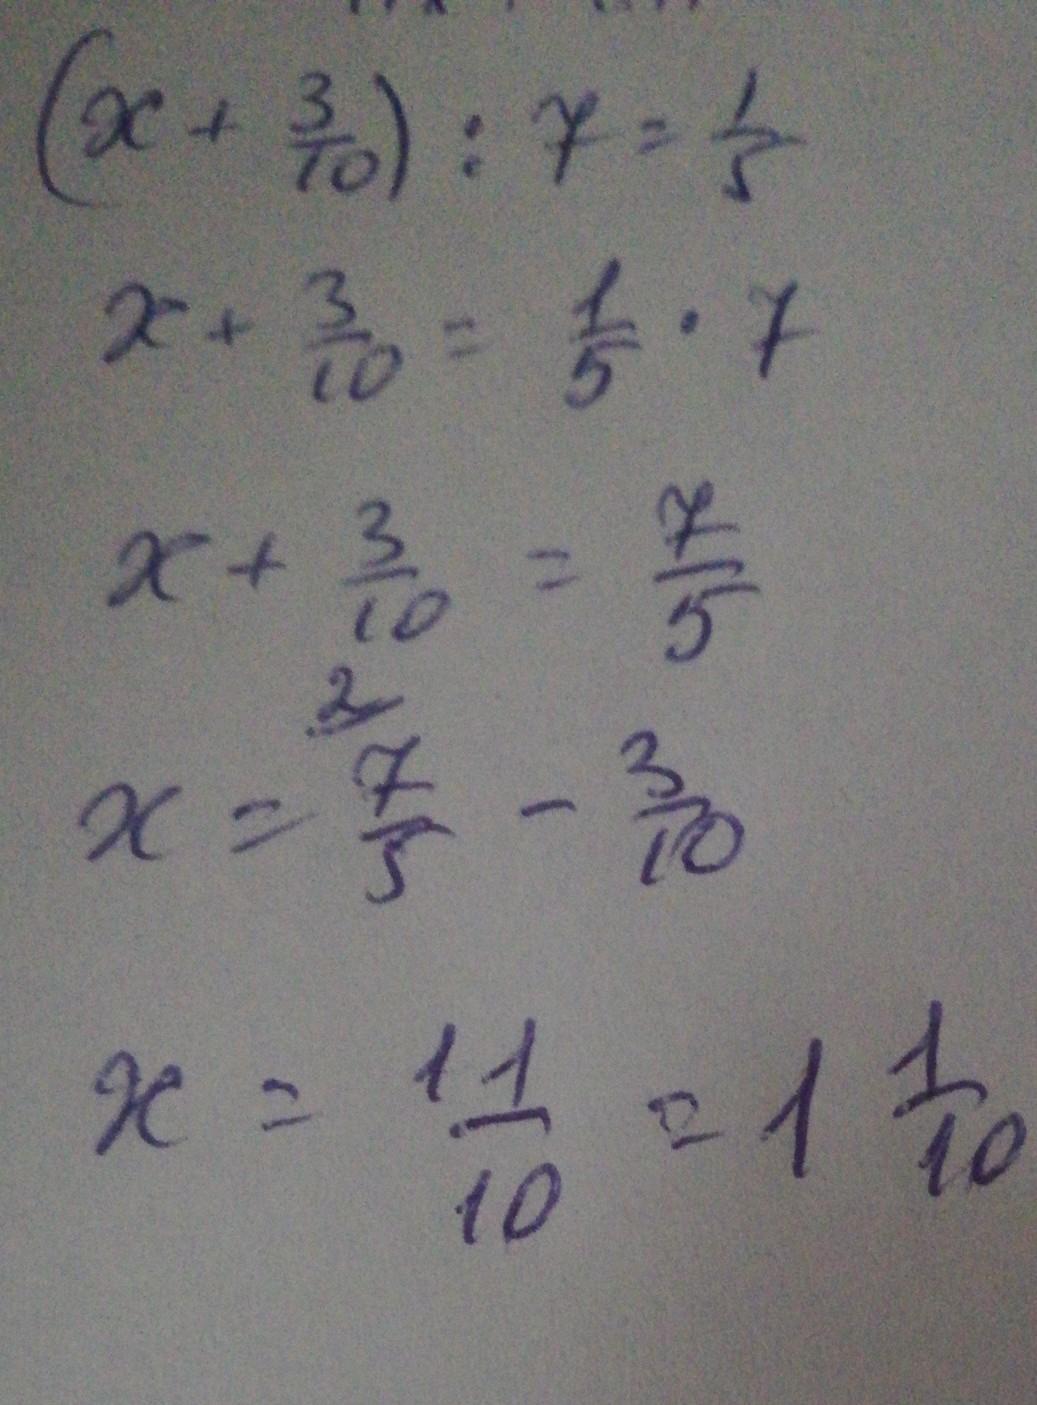 (x + 3/10) : 7 = 1/5
x + 3/10 = 1/5 · 7
x + 3/10 = 7/5
2
x = 7/5 - 3/10
x = 11/10 = 1 1/10